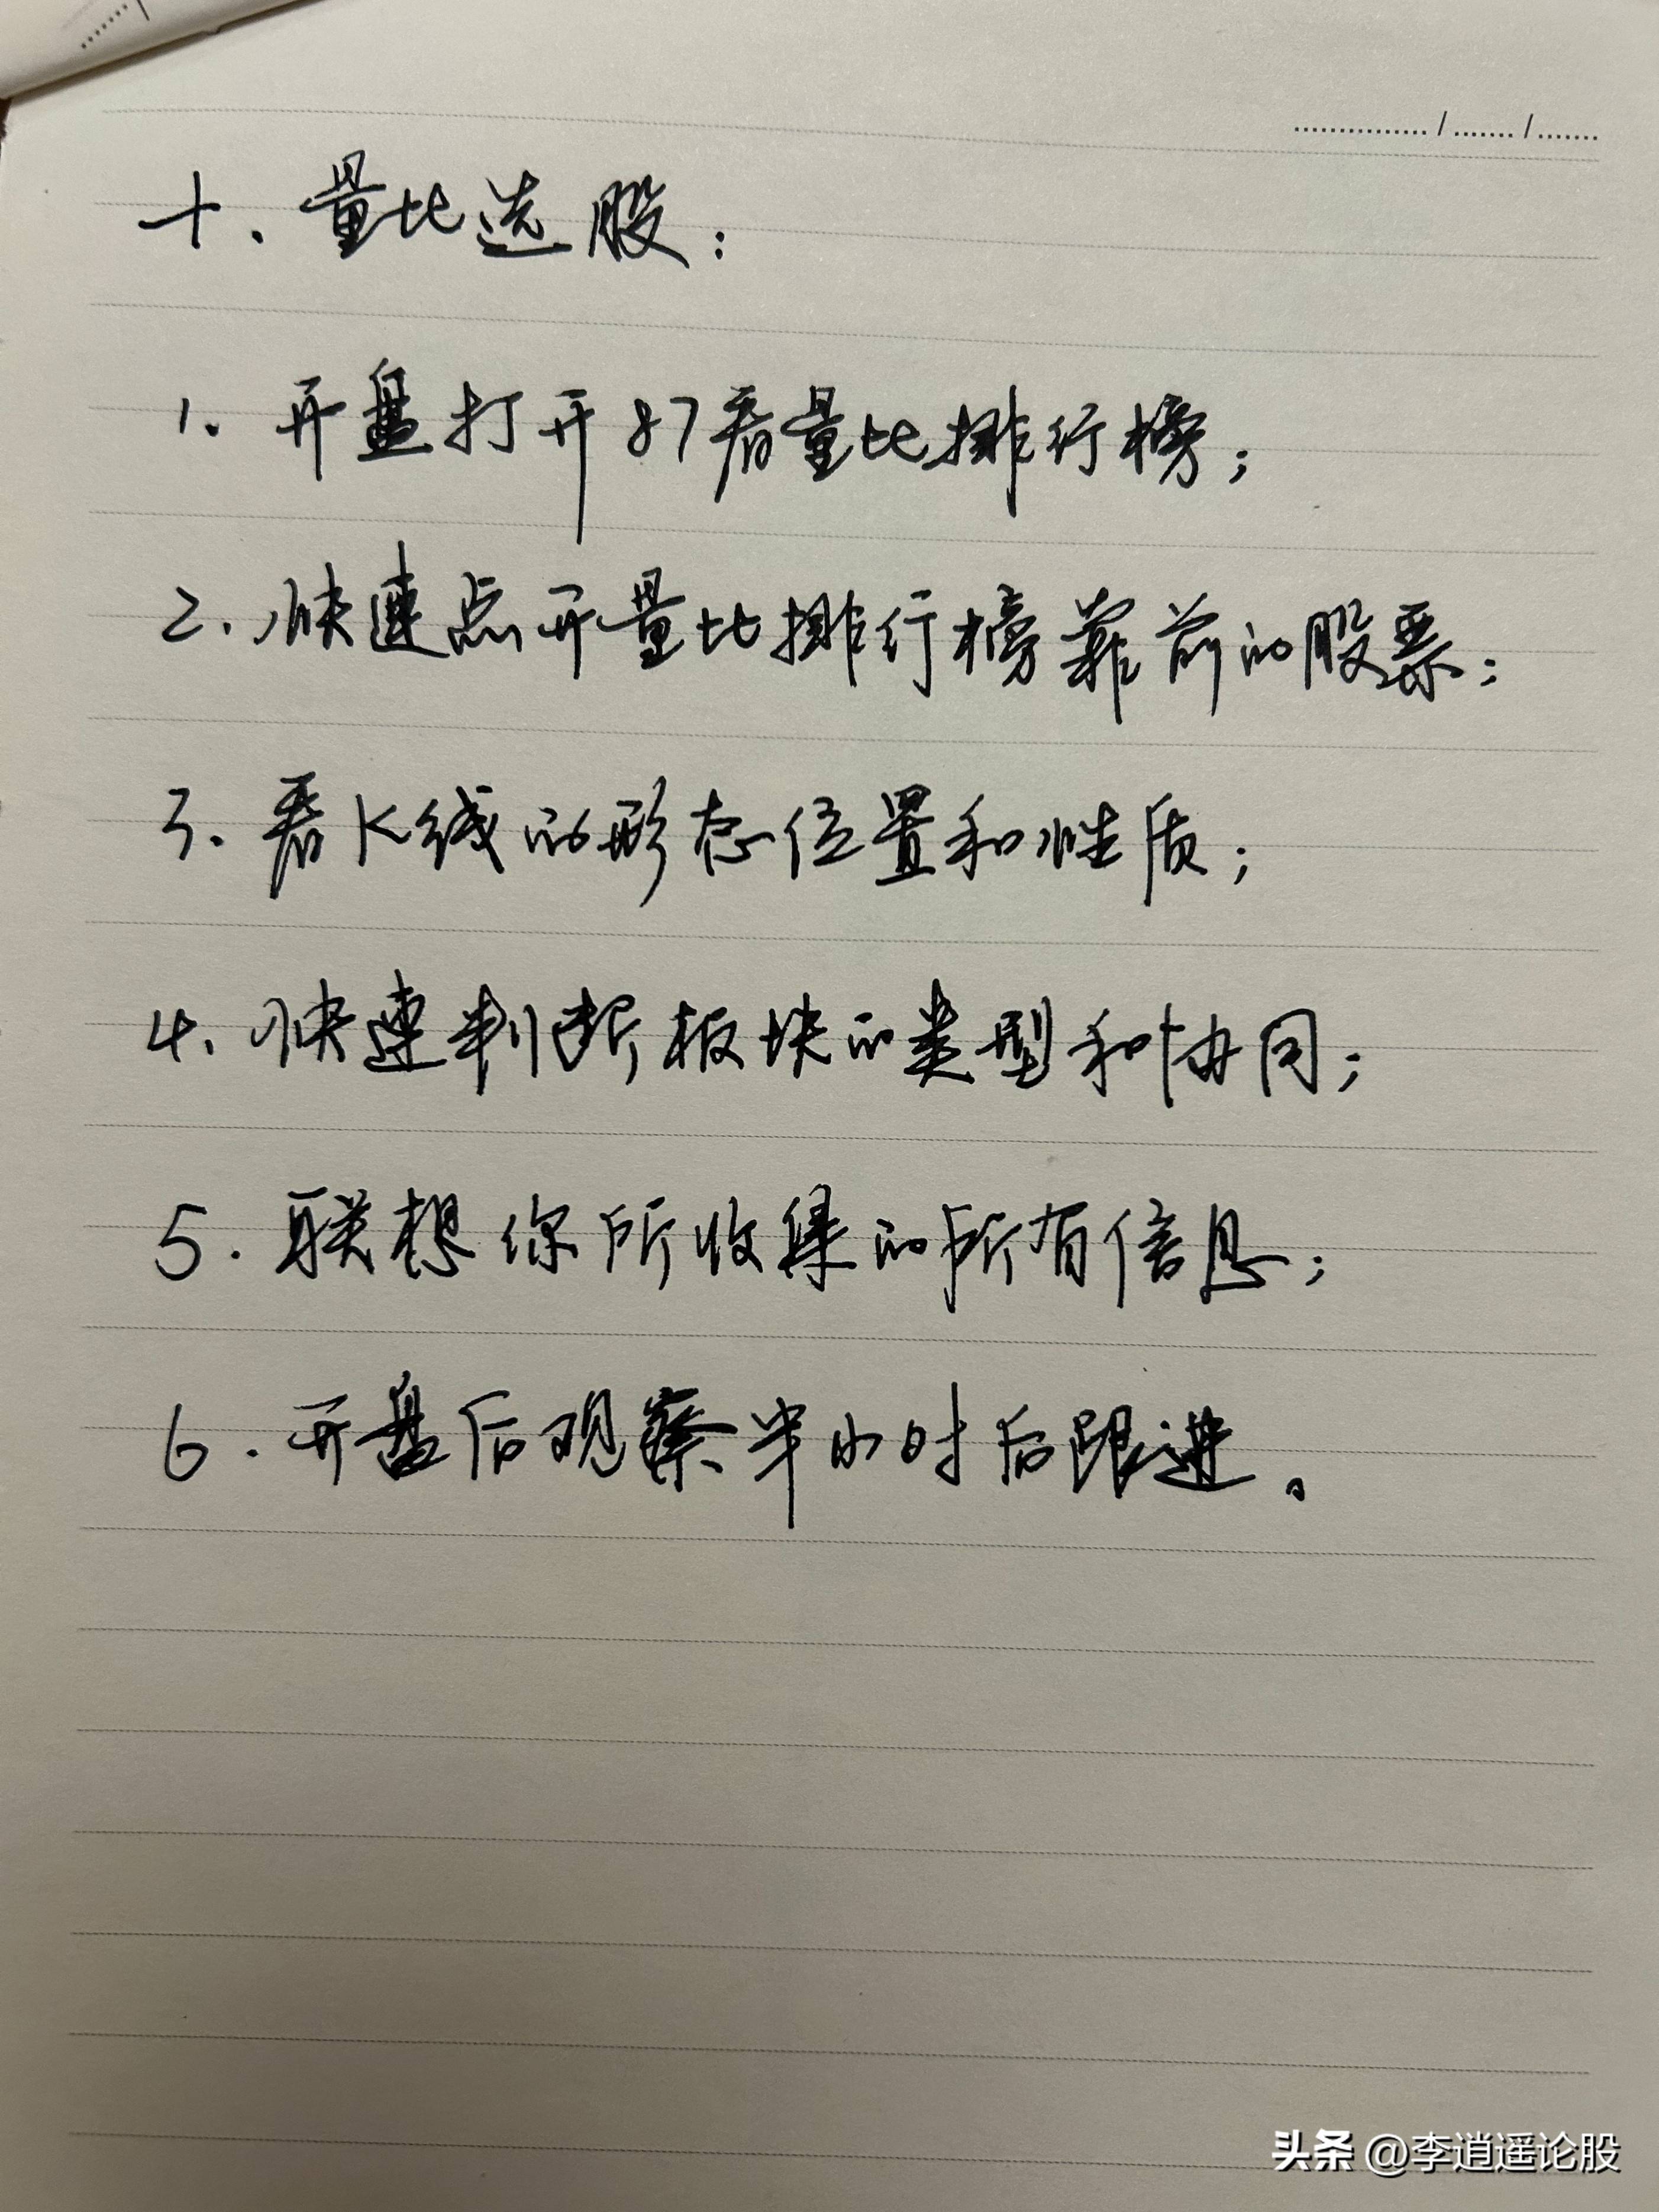 十、量比选股：
1. 开盘打开87看量比排行榜；
2. 快速点开量比排行榜靠前的股票；
3. 看K线的形态位置和性质；
4. 快速判断板块的类型和协同；
5. 联想你所收集的所有信息；
6. 开盘后观察半小时后跟进。
头条 @李逍遥论股